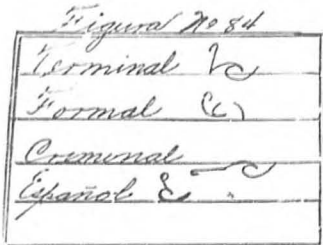 Figura Nº 84
Terminal
Formal
Creminal
Español